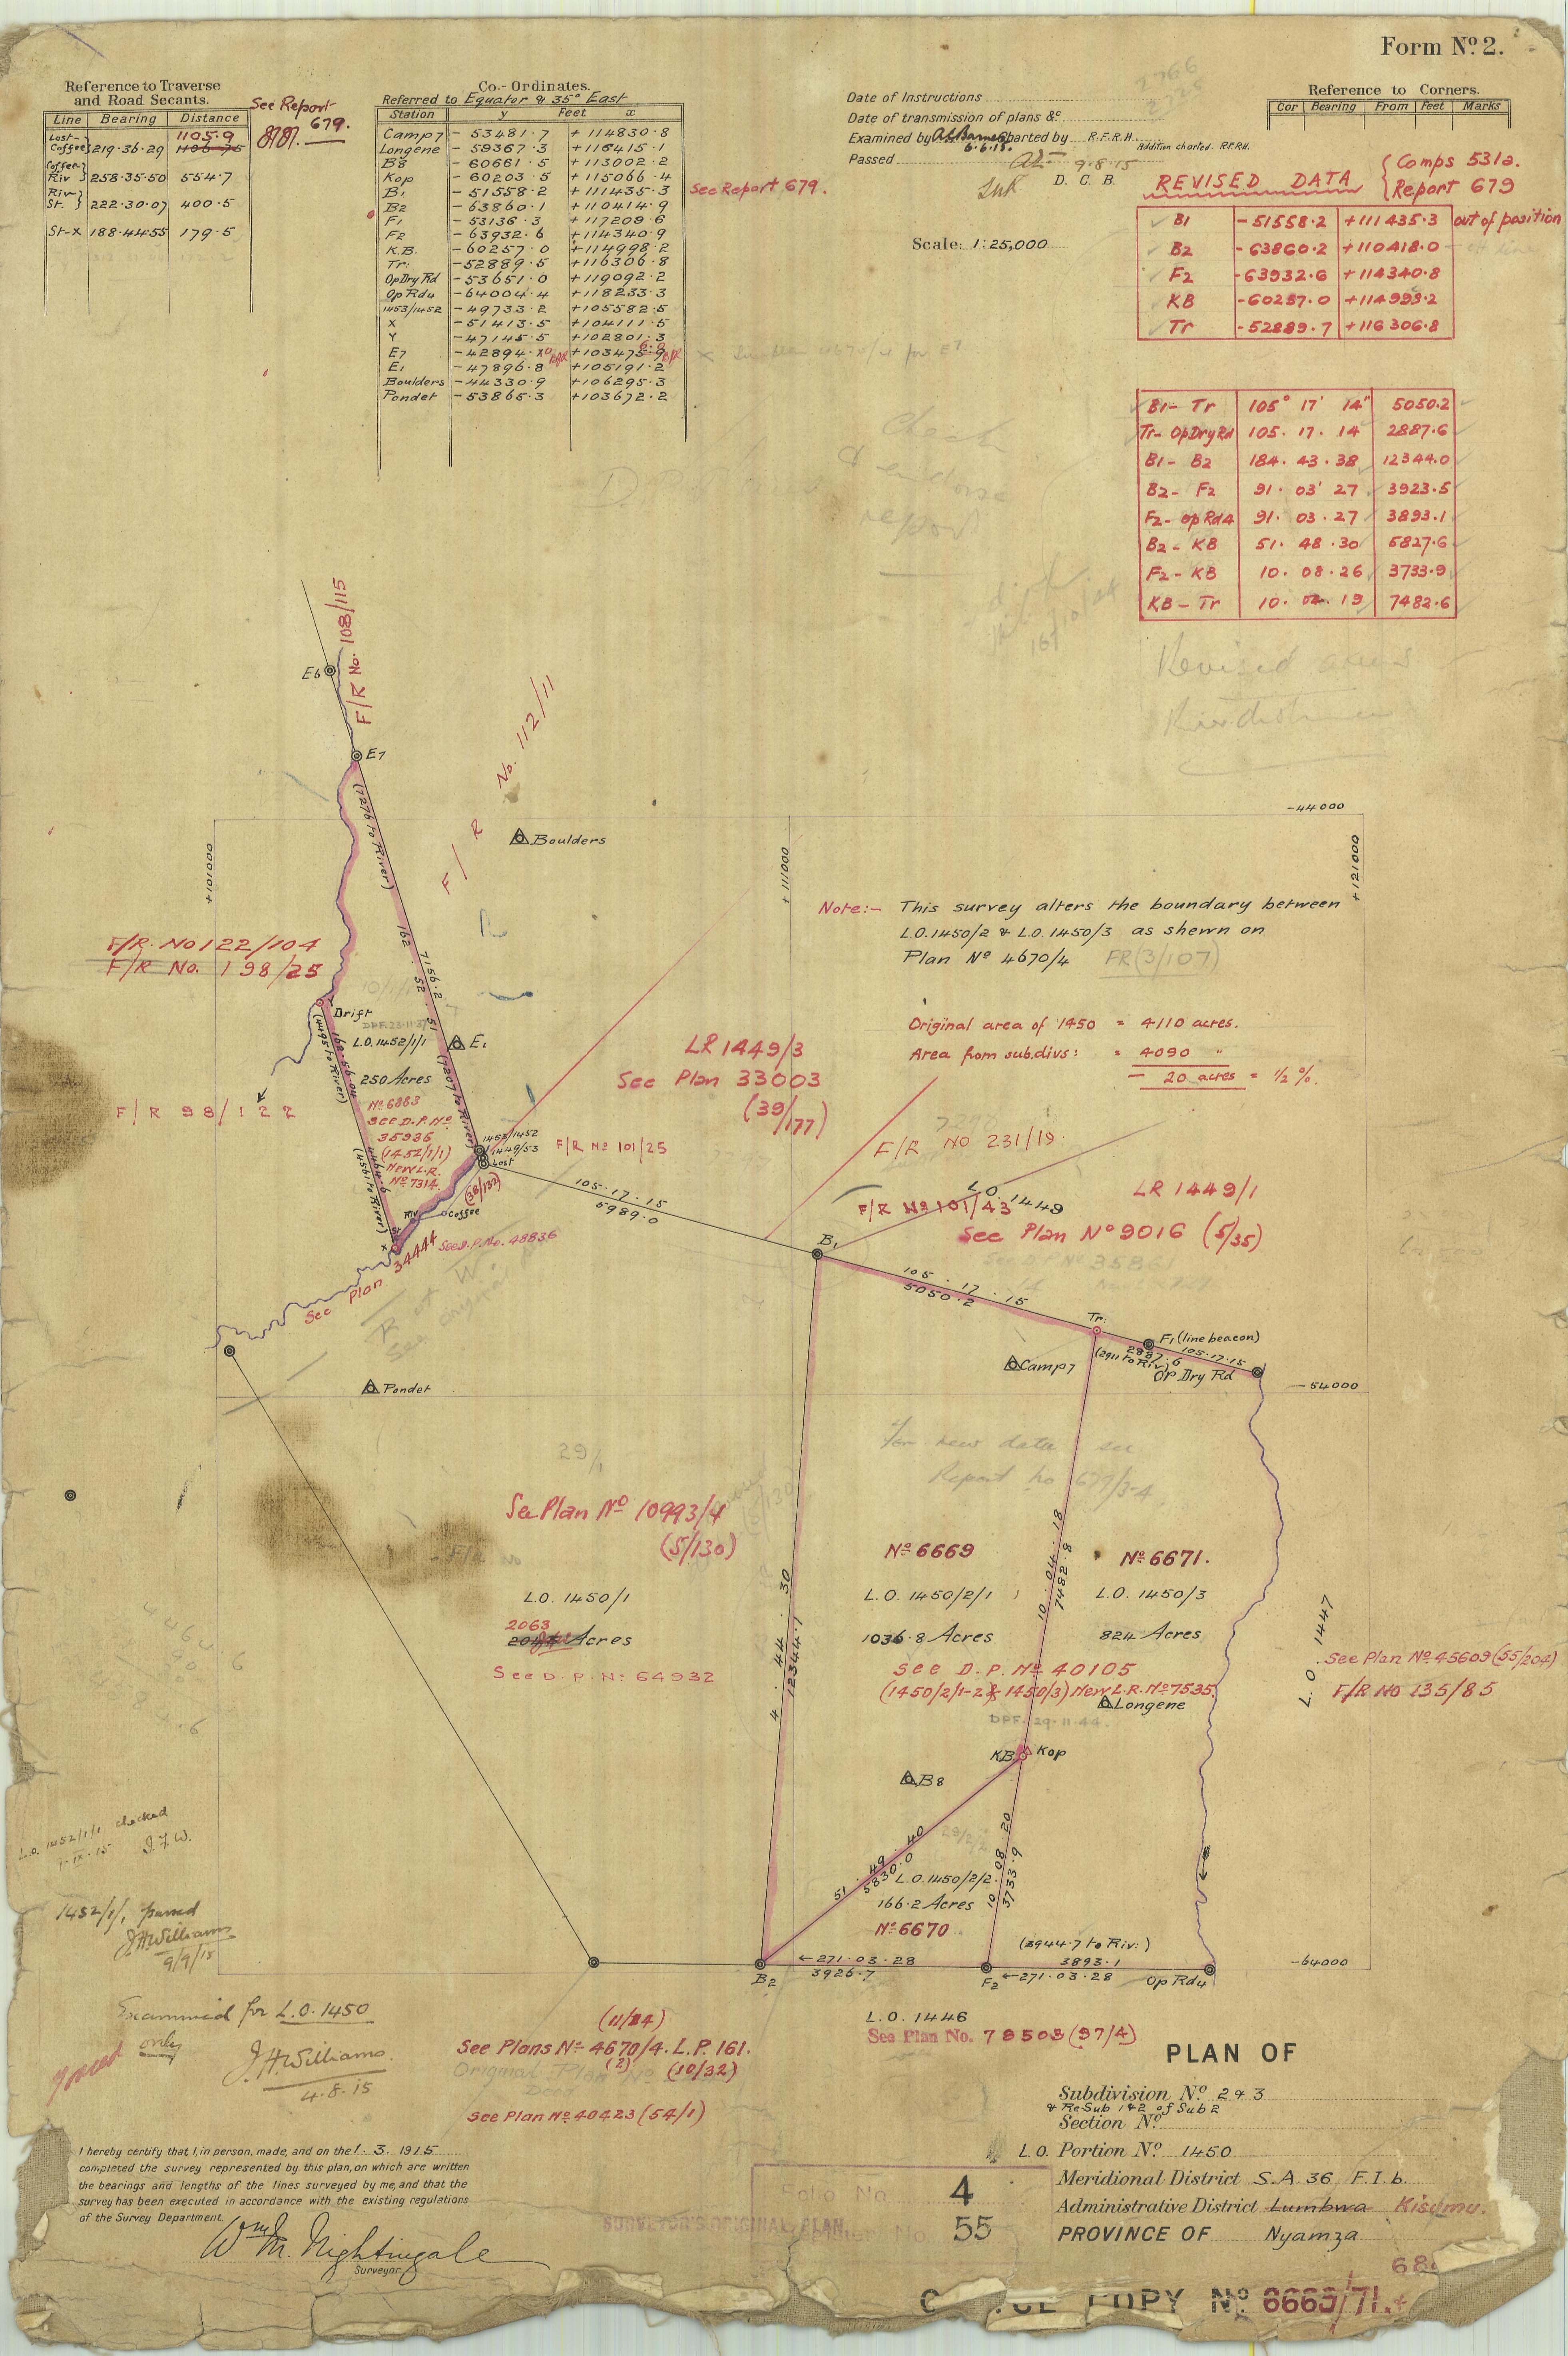 Form No. 2.
Reference to Traverse
and Road Secants.
Line Bearing Distance
Lost- Coffee 219.36.29 1105.9
Coffee- Riv 258.35.50 554.7
Riv- St. 222.30.07 400.5
St-x 188.44.55 179.5
See Report
679.
Co.-Ordinates.
Referred to Equator & 35° East
Station y Feet x
Camp 7 - 53481.7 + 114830.8
Longene - 59367.3 + 116415.1
B8 - 60661.5 + 113002.2
Kop - 60203.5 + 115066.4
B1 - 51558.2 + 111435.3
B2 - 63860.1 + 110414.9
F1 - 53136.3 + 117209.6
F2 - 63932.6 + 114340.9
K.B. - 60257.0 + 114998.2
Tr: - 52889.5 + 116306.8
Op Dry Rd - 53651.0 + 119092.2
Op Rd4 - 64004.4 + 118233.3
1453/1452 - 49733.2 + 105582.5
X - 51413.5 + 104111.5
Y - 47145.5 + 102801.3
E7 - 42894. + 103475.9
E1 - 47896.8 + 105191.2
Boulders - 44330.9 + 106295.3
Pondet - 53865.3 + 103672.2
See Report 679.
Date of Instructions
Date of transmission of plans &c
Examined by Charted by R.F.R.H.
6.6.15. Addition charted. R.F.R.H.
Passed 9.8.15
D. C. B.
Scale: 1:25,000
Reference to Corners.
Cor Bearing From Feet Marks
REVISED DATA
Comps 531a.
Report 679
B1 - 51558.2 + 111435.3 out of position
B2 - 63860.2 + 110418.0
F2 - 63932.6 + 114340.8
KB - 60257.0 + 114999.2
Tr - 52889.7 + 116306.8
B1- Tr 105° 17' 14" 5050.2
Tr- Op Dry Rd 105. 17. 14 2887.6
B1- B2 184. 43. 38 12344.0
B2- F2 91. 03' 27 3923.5
F2- Op Rd4 91. 03. 27 3893.1
B2- KB 51. 48. 30 5827.6
F2- KB 10. 08. 26 3733.9
KB- Tr 10. 04. 19 7482.6
Check
report
Revised areas
E6
F/R No. 108/115
E7
F/R No. 112/11
(7276 to River)
Boulders
-44000
+101000
+111000
+121000
Note:- This survey alters the boundary between
L.O.1450/2 & L.O.1450/3 as shewn on
Plan No 4670/4 FR(3/107)
F/R. No 122/104
F/R No. 198/25
162 . 52 . 51
7156.2
Drift
L.O.1452/1/1
E1
250 Acres
(7207 to River)
(4495 to River)
(4561 to River)
No 6663
See D.P. No
35936
(1452/1/1)
New L.R.
No 7314.
F/R 98/122
Original area of 1450 = 4110 acres.
Area from subdivs: = 4090 "
- 20 acres = ½ %.
LR 1449/3
See Plan 33003
(39/177)
1453/1452
1449/53
Lost
F/R No 101/25
(38/132)
Coffee
Riv
St
x
See D.P. No. 48836
See Plan 34444
105.17.15
5989.0
F/R NO 231/19.
L.O. 1449
F/R No 101/43
LR 1449/1
See Plan No 9016 (5/35)
B1
105 . 17 . 15
5050.2
Tr:
F1 (line beacon)
2887.6
105.17.15
(2911 to Riv)
Op Dry Rd
Camp 7
Pondet
-54000
For new data see
Report no 679/3-4
See Plan No 10993/4
(5/130)
L.O. 1450/1
2063
Acres
See D.P. No 64932
4 . 44 . 30
12344.1
No 6669
L.O. 1450/2/1
1036.8 Acres
10 . 04 . 18
7482.8
No 6671.
L.O. 1450/3
824 Acres
See D.P. No 40105
(1450/2/1-2 & 1450/3) New L.R. No 7535.
Longene
DPF. 29-11-44.
L.O. 1447
See Plan No 45609 (55/204)
F/R NO 135/85
KB
Kop
B8
51 . 49 . 40
5830.0
L.O.1450/2/2.
166.2 Acres
No 6670
10 08 20
3733.9
(3944.7 to Riv:)
←271.03.28
3926.7
3893.1
←271.03.28
B2
F2
Op Rd4
-64000
L.O. 1452/1/1 checked
J.F.W.
1452/1/1 passed
J.H. Williams
9/9/15
Examined for L.O. 1450
only
J.H. Williams.
4.8.15
(11/24)
See Plans No 4670/4. L.P. 161.
(2) (10/32)
See Plan No 40423 (54/1)
L.O. 1446
See Plan No. 78503 (97/4)
PLAN OF
Subdivision No. 2 & 3
& Re Sub 1 & 2 of Sub 2
Section No
L.O. Portion No. 1450
Meridional District S.A. 36 F.I.b.
Administrative District Lumbwa Kisumu.
PROVINCE OF Nyamza
I hereby certify that I, in person, made, and on the 1. 3. 1915
completed the survey represented by this plan, on which are written
the bearings and lengths of the lines surveyed by me, and that the
survey has been executed in accordance with the existing regulations
of the Survey Department.
Wm M. Nightingale
Surveyor.
Folio No. 4
55
SURVEYOR'S ORIGINAL PLAN
COPY No. 6663/71.